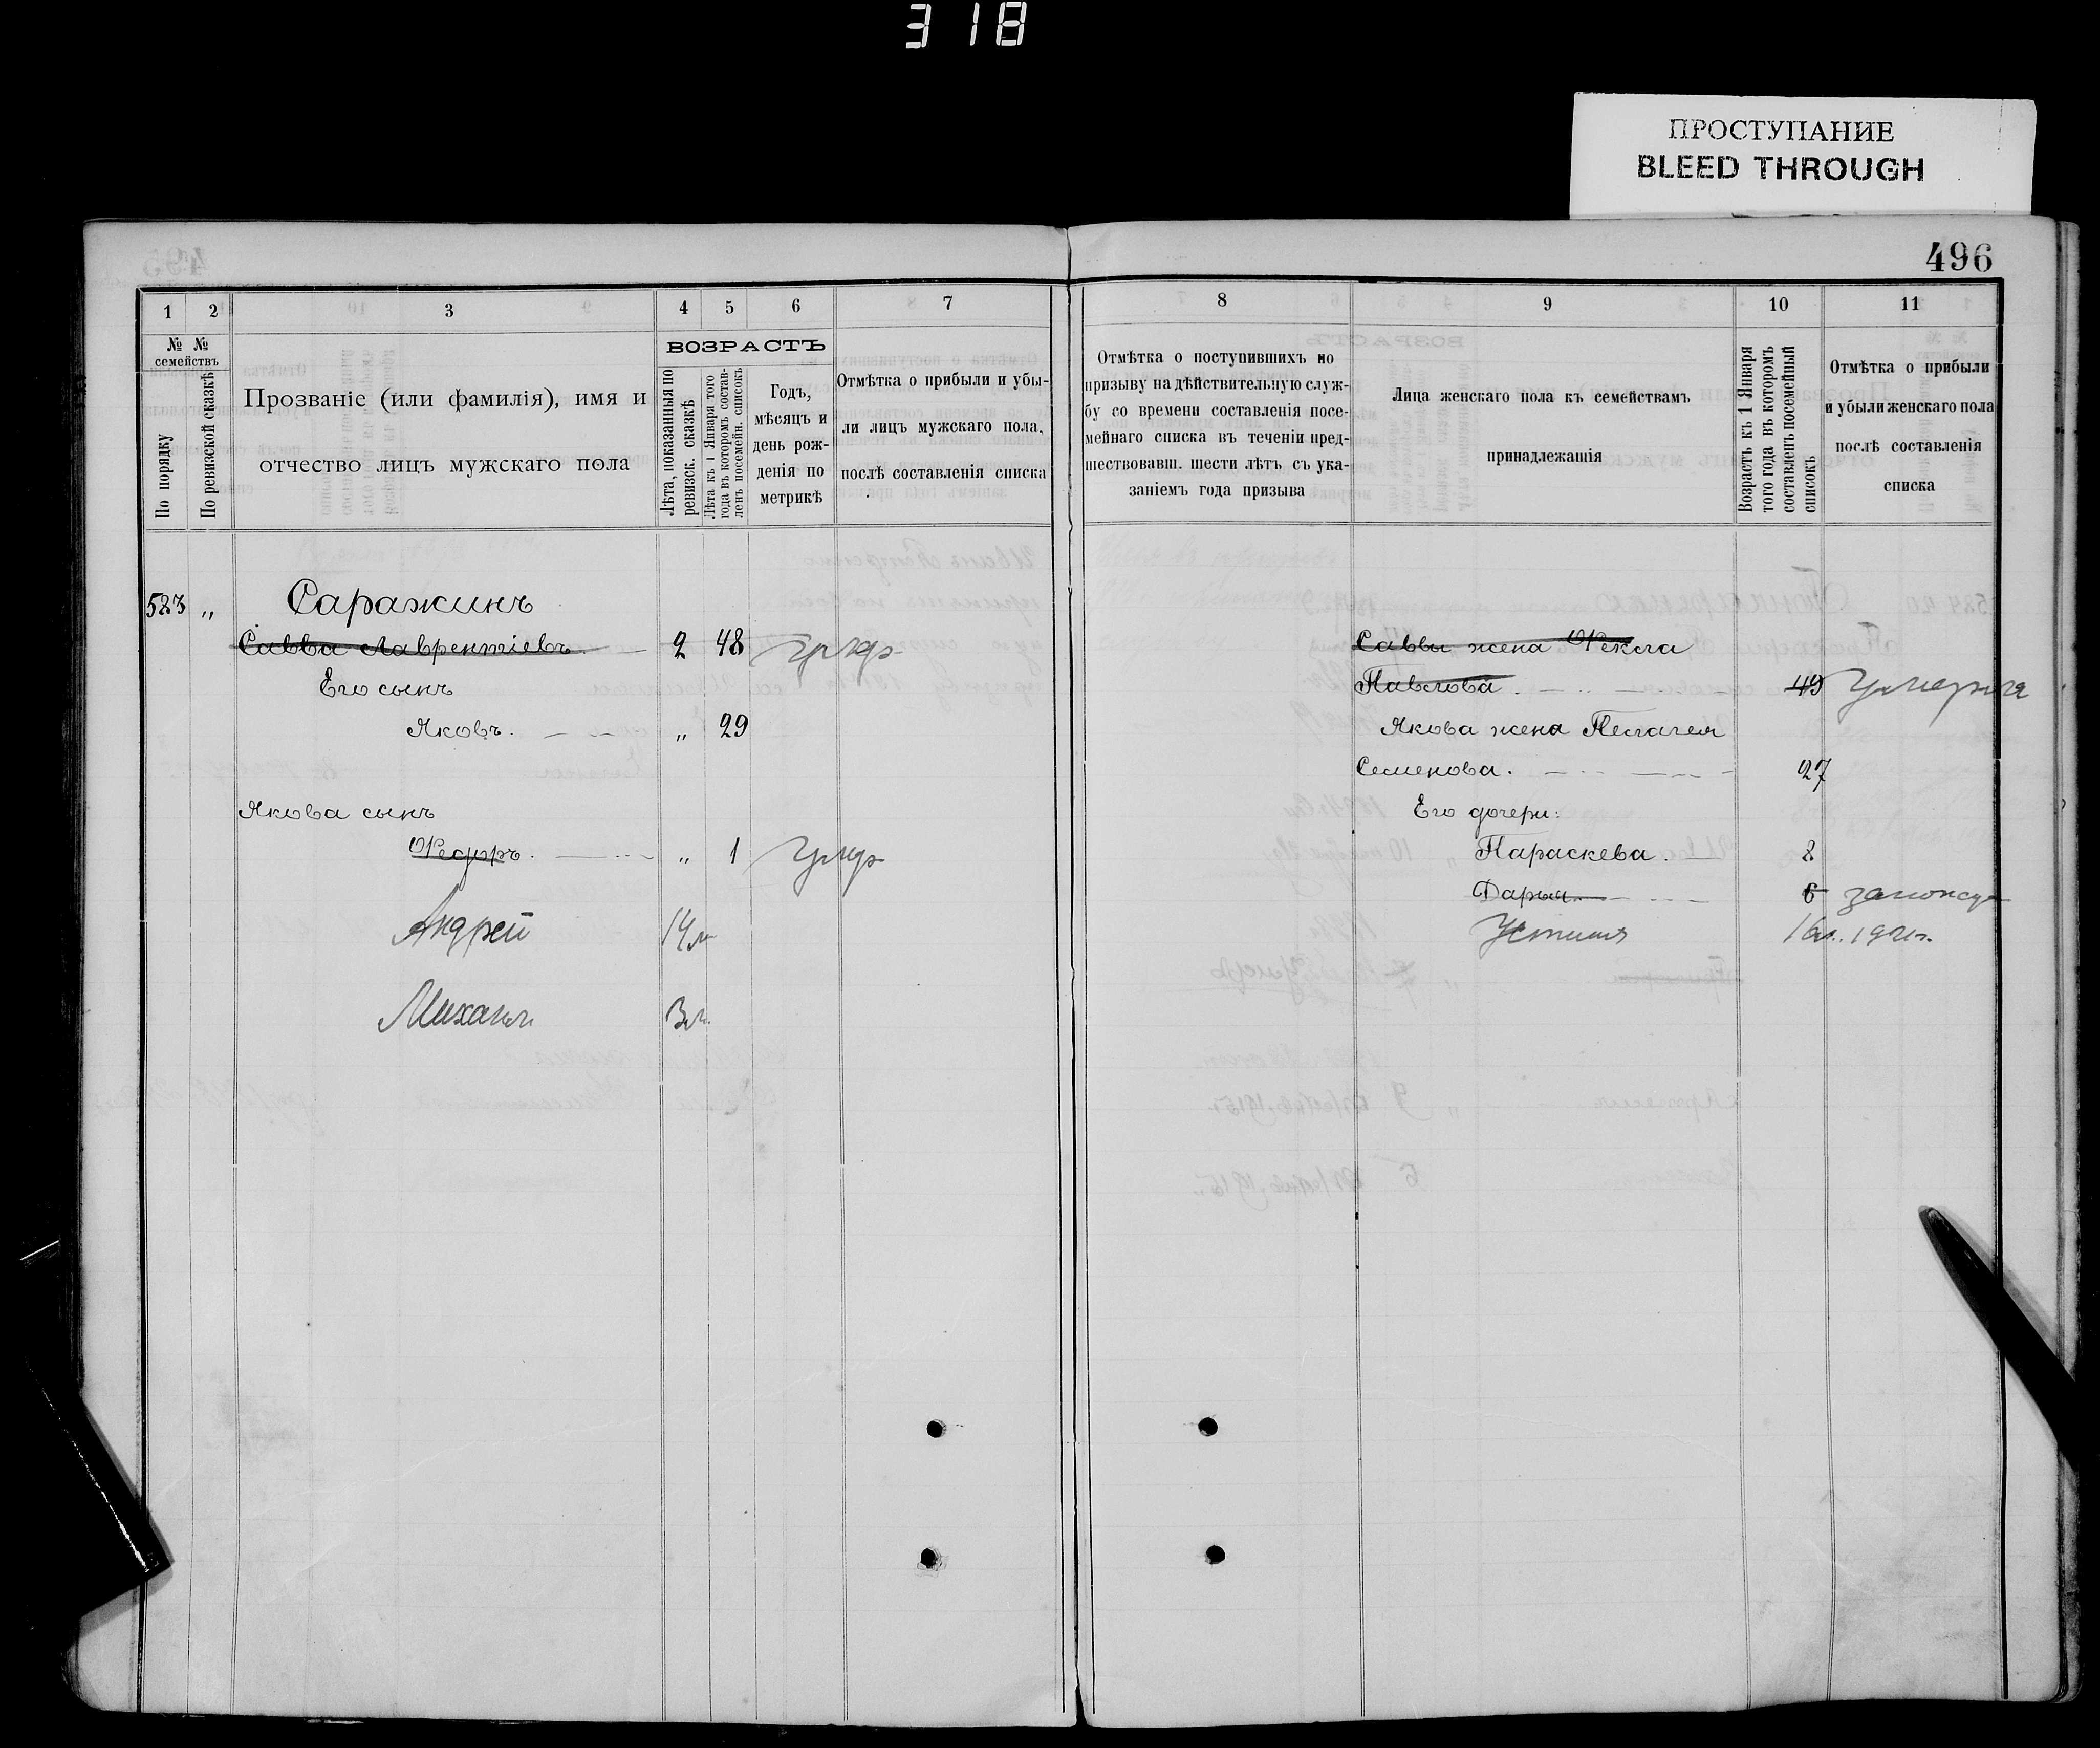 318
ПРОСТУПАНИЕ
BLEED THROUGH
496
1 2 3 4 5 6 7
№ № семействъ
По порядку
По ревизской сказкѣ
Прозваніе (или фамилія), имя и
отчество лицъ мужскаго пола
ВОЗРАСТЪ
Лѣта, показанныя по
ревизск. сказкѣ
Лѣта къ 1 Января того
года въ которомъ состав-
ленъ посемейн. списокъ
Годъ,
мѣсяцъ и
день рож-
денія по
метрикѣ
Отмѣтка о прибыли и убы-
ли лицъ мужскаго пола,
послѣ составленія списка
523 „ Саражинъ
Савва Лаврентіевъ 2 48 умер
Его сынъ
Яковъ. „ 29
Якова сынъ
Ѳедоръ. „ 1 умер
Андрей 14 л
Михаилъ 3 л.
8 9 10 11
Отмѣтка о поступившихъ по
призыву на дѣйствительную служ-
бу со времени составленія посе-
мейнаго списка въ теченіи пред-
шествовавш. шести лѣтъ съ ука-
заніемъ года призыва
Лица женскаго пола къ семействамъ
принадлежащія
Возрастъ къ 1 Января
того года въ которомъ
составленъ посемейный
списокъ
Отмѣтка о прибыли
и убыли женскаго пола
послѣ составленія
списка
Саввы жена Ѳекла
Павлова. 49 умерла
Якова жена Пелагея
Семенова. 27
Его дочери:
Параскева. 8
Дарья. 6 замужем
Устинья